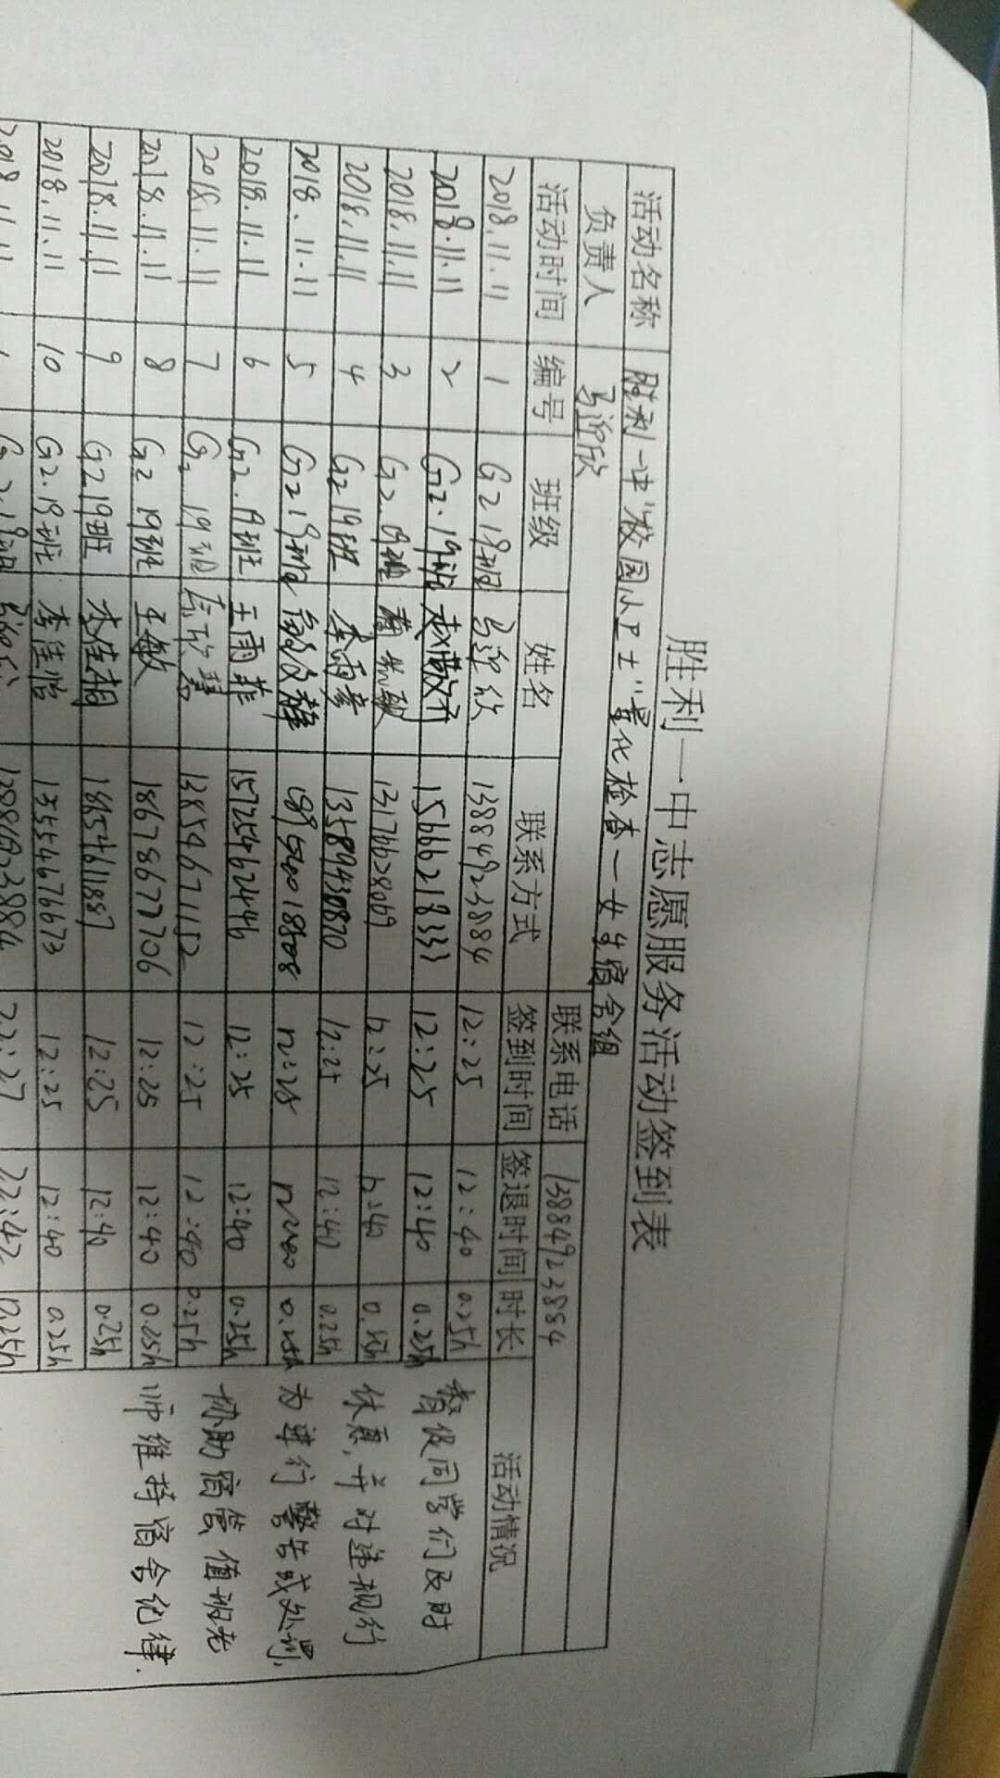 胜利一中志愿服务活动签到表
活动名称 胜利一中"校园小卫士"量化检查—女生宿舍组
负责人 马迎欣 联系电话 13884923884
活动时间 编号 班级 姓名 联系方式 签到时间 签退时间 时长 活动情况
2018.11.11 1 G2 19班 马迎欣 13884923884 12:25 12:40 0.25h
2018.11.11 2 G2.19班 15666218333 12:25 12:40 0.25h
2018.11.11 3 G2.19班 13176628069 12:25 12:40 0.25h
2018.11.11 4 G2 19班 李雨彦 13589430820 12:25 12:40 0.25h
2018.11.11 5 G2 19班 12:25 12:40 0.25h
2018.11.11 6 G2.19班 王雨菲 15725462446 12:25 12:40 0.25h
2018.11.11 7 G2 19班 13854671152 12:25 12:40 0.25h
2018.11.11 8 G2 19班 王敏 18678677706 12:25 12:40 0.25h
2018.11.11 9 G2 19班 李佳桐 18654611887 12:25 12:40 0.25h
2018.11.11 10 G2.19班 李佳怡 13554676673 12:25 12:40 0.25h
督促同学们及时
休息,并对违规行
为进行警告或处罚,
协助宿管、值班老
师维持宿舍纪律.